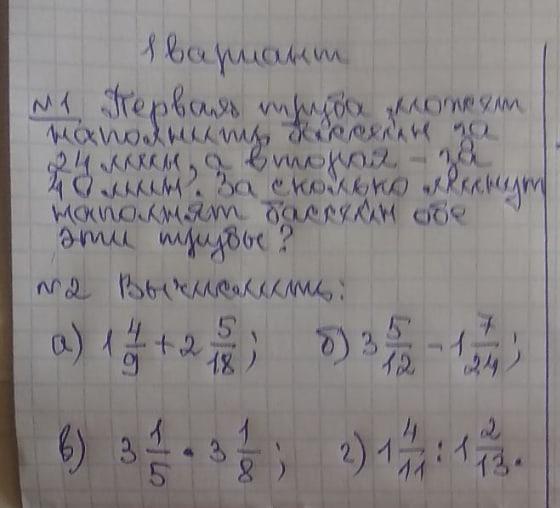 1 вариант
№1 Первая труба может
наполнить бассейн за
24 мин, а вторая – за
40 мин. За сколько минут
наполнят бассейн обе
эти трубы?
№2 Вычислить:
а) 1 4/9 + 2 5/18; б) 3 5/12 - 1 7/24;
в) 3 1/5 · 3 1/8; г) 1 4/11 : 1 2/13.